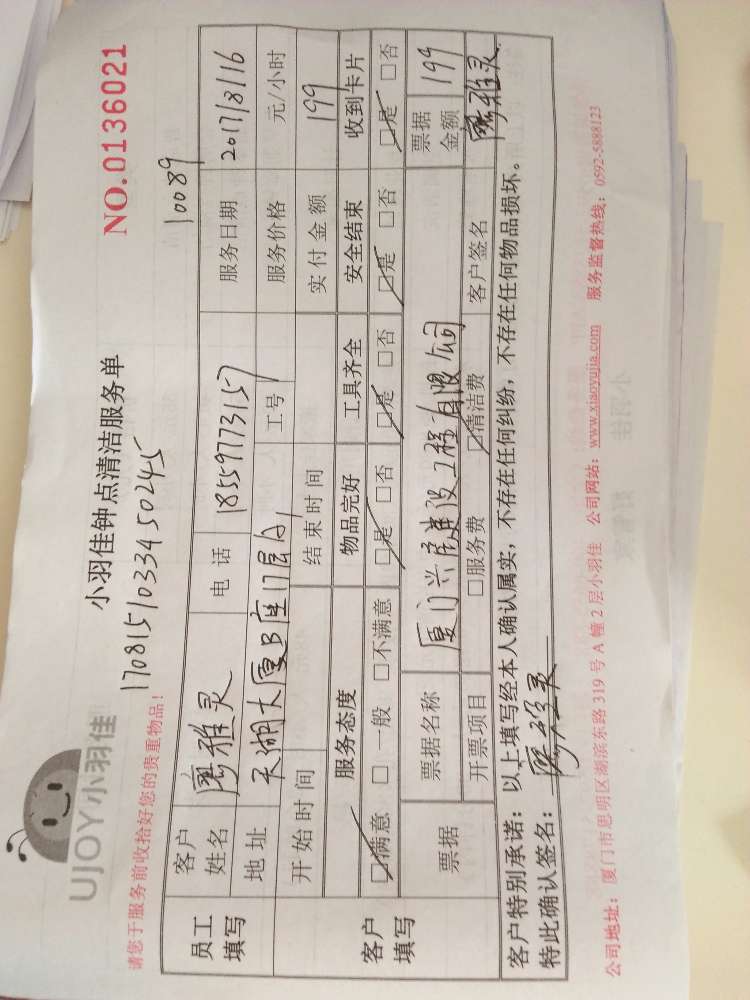 UJOY小羽佳
小羽佳钟点清洁服务单
NO.0136021
1708151033450245
10089
请您于服务前收拾好您的贵重物品！
员工填写 客户姓名 廖雅灵 电话 18559773157 服务日期 2017/8/16
地址 天湖大厦B座17层A1 工号 服务价格 元/小时
客户填写 开始时间 结束时间 实付金额 199
服务态度 物品完好 工具齐全 安全结束 收到卡片
☑满意 □一般 □不满意 ☑是 □否 ☑是 □否 ☑是 □否 ☑是 □否
票据 票据名称 厦门兴 建设工程有限公司 票据金额 199
开票项目 □服务费 ☑清洁费 客户签名 廖雅灵
客户特别承诺：以上填写经本人确认属实，不存在任何纠纷，不存在任何物品损坏。
特此确认签名：廖雅灵
公司地址：厦门市思明区湖滨东路319号A幢2层小羽佳 公司网站：www.xiaoyujia.com 服务监督热线：0592-5888123